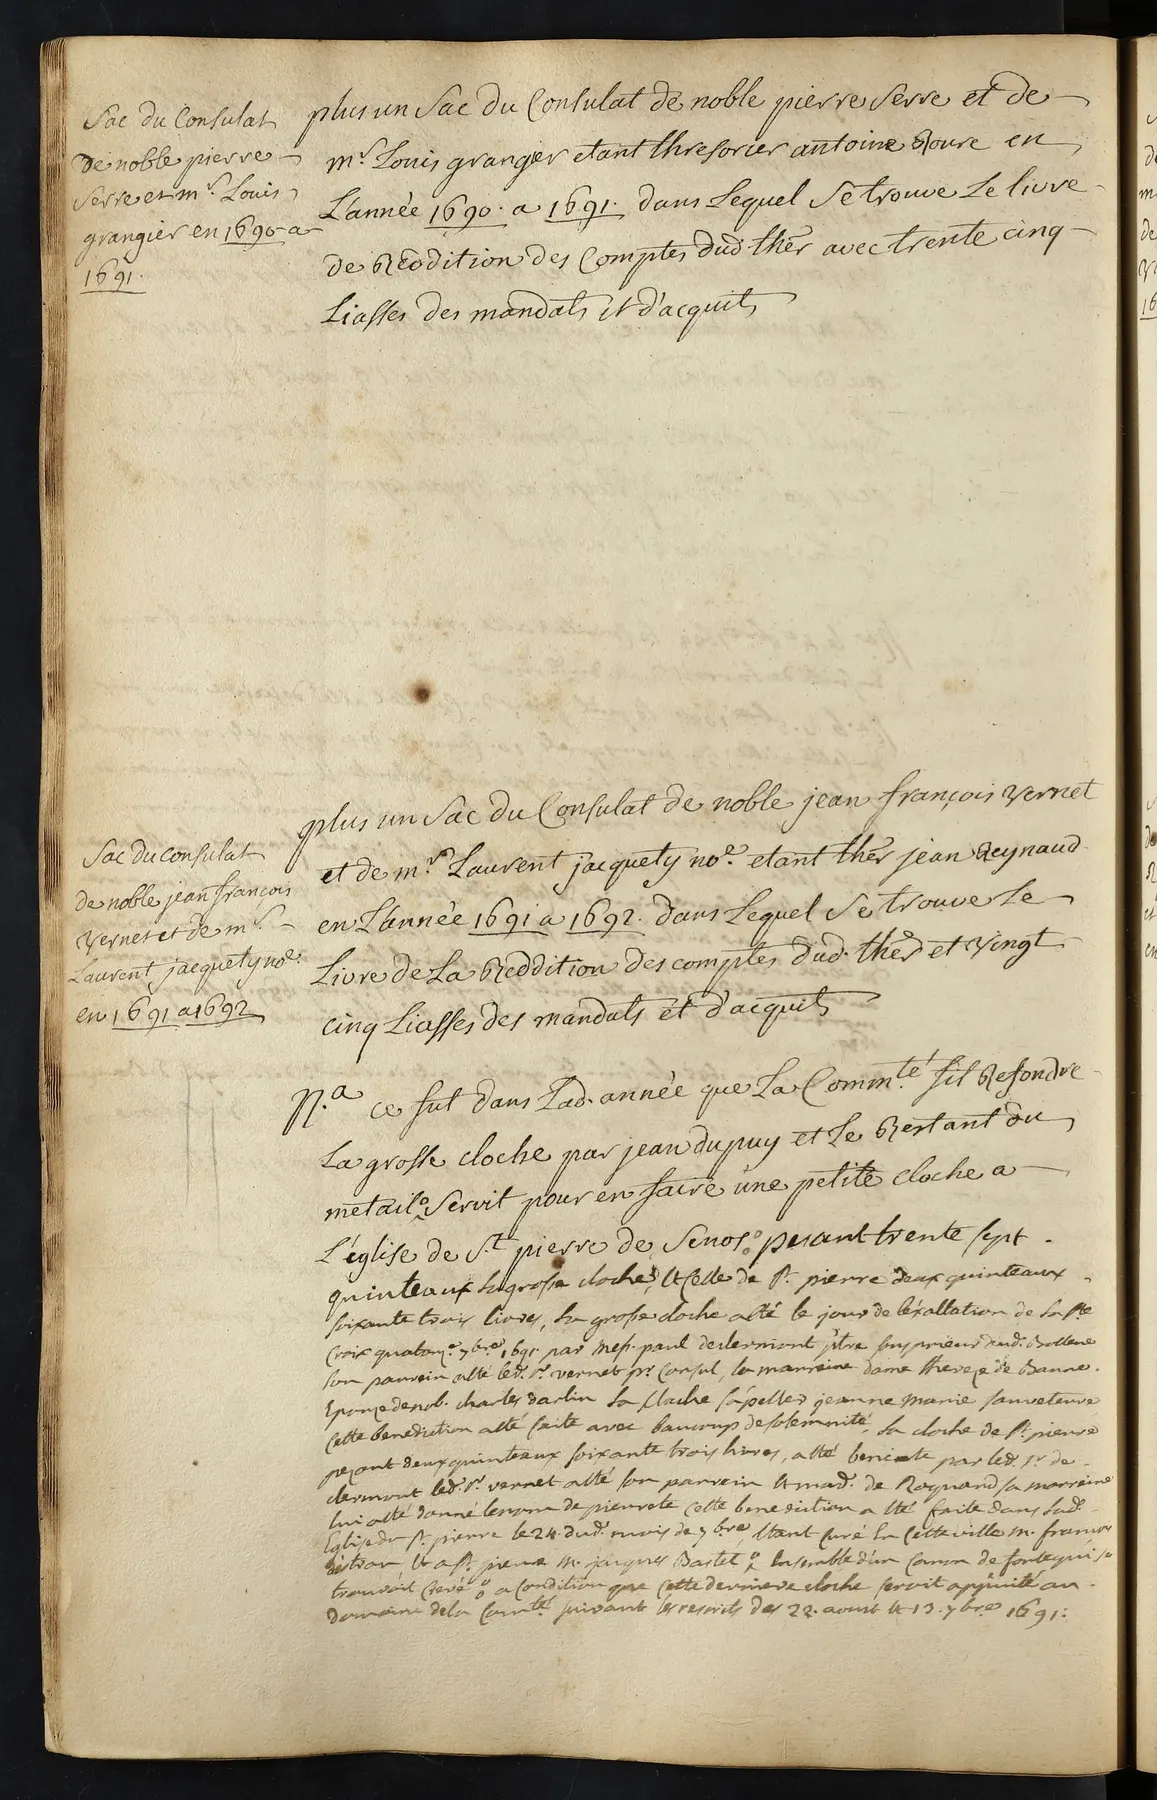 Sac du Consulat
de noble pierre
Serre et m.r Louis
grangier en 1690 a
1691.
plus un Sac du Consulat de noble pierre Serre et de
m.r Louis grangier etant thresorier antoine Roure en
L'année 1690. a 1691. dans Lequel Se trouve Le livre
de Reddition des Comptes dud ther avec trente cinq
Liasses des mandats et d'acquits
Sac du consulat
de noble jean françois
Vernet et de m.r
Laurent jacquety no.e
en 1691 a 1692
plus un Sac du Consulat de noble jean françois Vernet
et de m.r Laurent jacquety no.e etant ther jean Reynaud
en L'année 1691 a 1692. dans Lequel Se trouve Le
Livre de La Reddition des comptes dud. ther et Vingt
cinq Liasses des mandats et d'acquits
N.a ce fut dans Lad. année que La Comm.té fit Refondre
La grosse cloche par jean dupuy et Le Restant du
metail Servit pour en faire une petite cloche a
L'église de S.t pierre de Senos pesant trente sept
quinteaux la grosse cloche, et Celle de S.t pierre deux quinteaux
soixante trois livres, la grosse cloche a eté le jour de l'exaltation de la S.te
Croix quatorz.e 7bre 1691. par mess. paul declermont soupprieur dud. Bollene
son parrein a eté led. S.r vernet p.r Consul, la marreine dame thereze de Banne
Epouze de nob. charles darlin la Cloche s'apelle jeanne marie
Cette benediction a eté faite avec baucoup de solemnité, la cloche de S.t pierre
pezant deux quinteaux soixante trois livres, a eté beniste par led. S.r de
clermont led. S.r vernet a eté son parrein et mad. de Roquard sa marreine
lui a eté donné le nom de pierrete cette benediction a eté faite dans lad.
Eglise de S.t pierre le 24. dud. mois de 7bre Etant curé en Cette ville m. francois
et a S.t pierre m. jacques Bastet Ensemble d'un Canon de fonte qui se
trouvoit Crevé a condition que cette derniere cloche seroit au
Domaine de la Com.té suivant les rescrits des 22. aoust et 13. 7bre 1691: